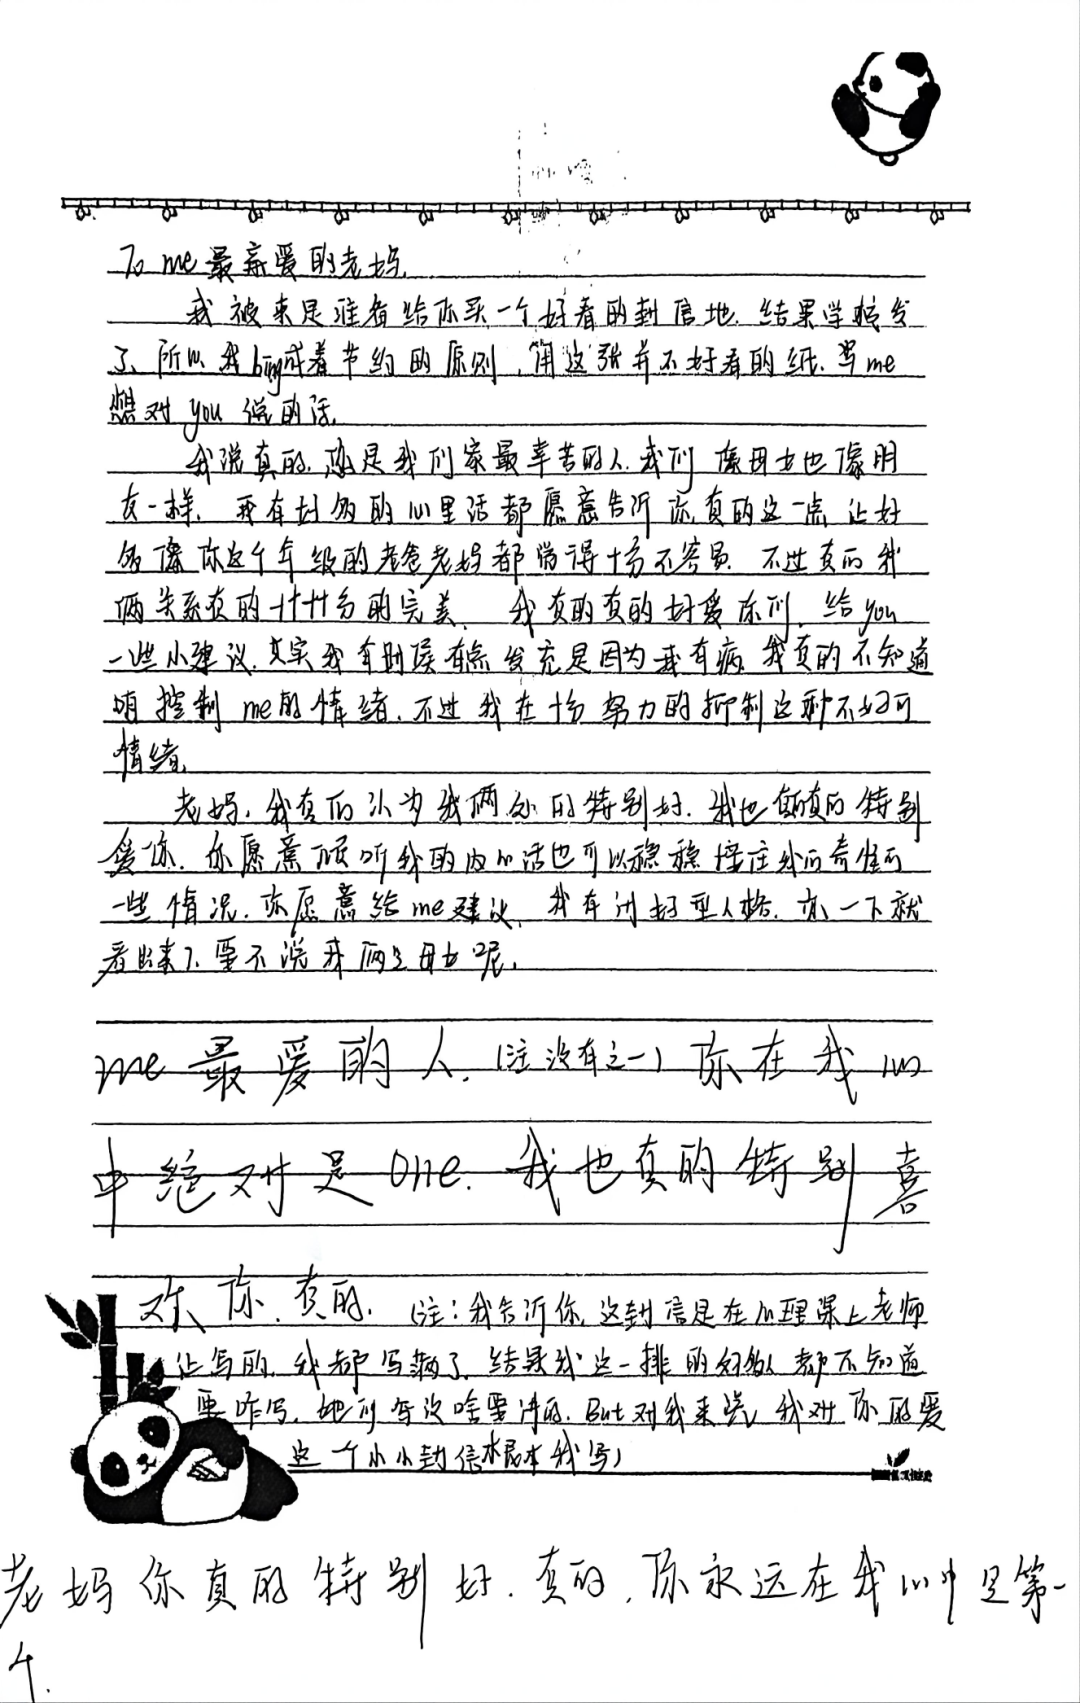 To me最亲爱的老妈.
我被来是准备给你买一个好看的封信地.结果学校发
了、所以我bing成着节约的原则,用这张并不好看的纸.写me
想对you说的话.
我说真的.你是我们家最辛苦的人.我们像母女也像朋
友一样.我有好多的心里话都愿意告诉你,真的这一点让好
多像你这个年级的老爸老妈都觉得十分不容易.不过真的我
俩关系真的十十分的完美.我真的真的好爱你们.给you
一些小建议.其实我有时侯有点发充是因为我有病.我真的不知道
咱控制me的情绪.不过我在十分努力的抑制这种不好的
情绪.
老妈,我真的认为我俩处的特别好.我也真的真的特别
爱你.你愿意倾听我的内心话也可以稳稳接住我的奇怪的
一些情况.你愿意给me建议,我有讨好型人格.你一下就
看出来了.要不说我俩是母女呢,
me最爱的人.(注没有之一)你在我心
中绝对是one.我也真的特别喜
欢你.真的.(注:我告诉你,这封信是在心理课上老师
让写的.我都写满了.结果我这一排的好多人都不知道
要咋写.她们写没啥要讲的.But对我来说,我对你的爱
这一个小小封信根本我写)
老妈你真的特别好.真的,你永远在我心中是第一
个.